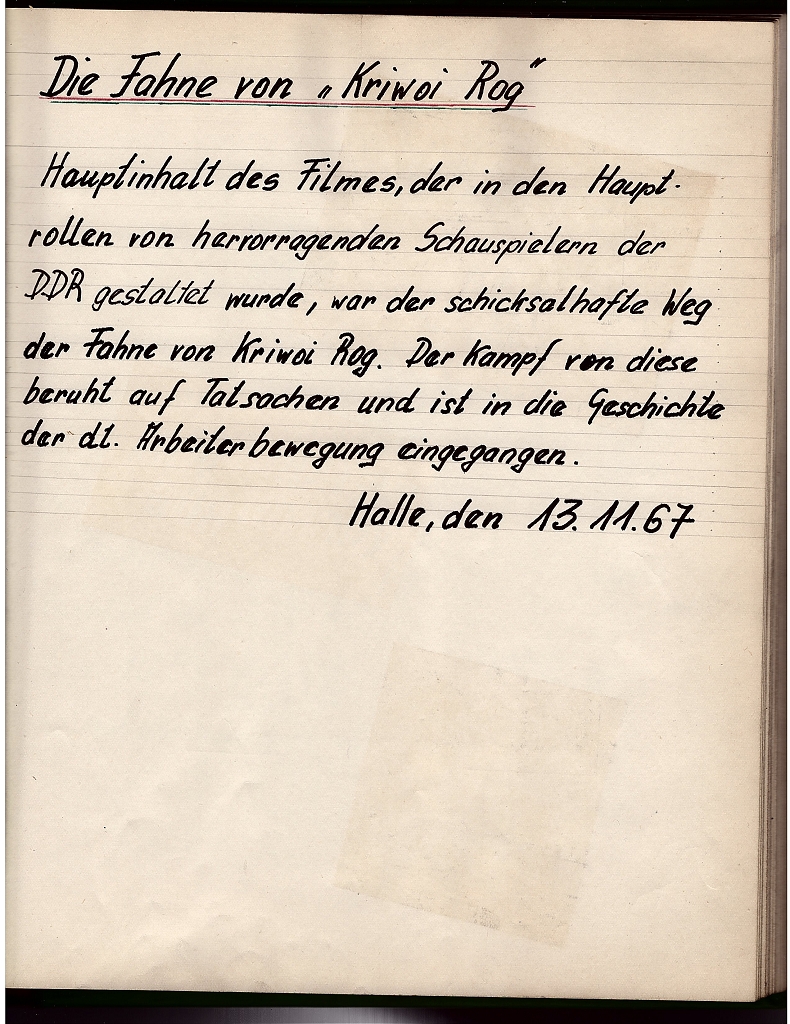 Die Fahne von „Kriwoi Rog"
Hauptinhalt des Filmes, der in den Haupt-
rollen von hervorragenden Schauspielern der
DDR gestaltet wurde, war der schicksalhafte Weg
der Fahne von Kriwoi Rog. Der Kampf von diese
beruht auf Tatsachen und ist in die Geschichte
der dt. Arbeiterbewegung eingegangen.
Halle, den 13.11.67